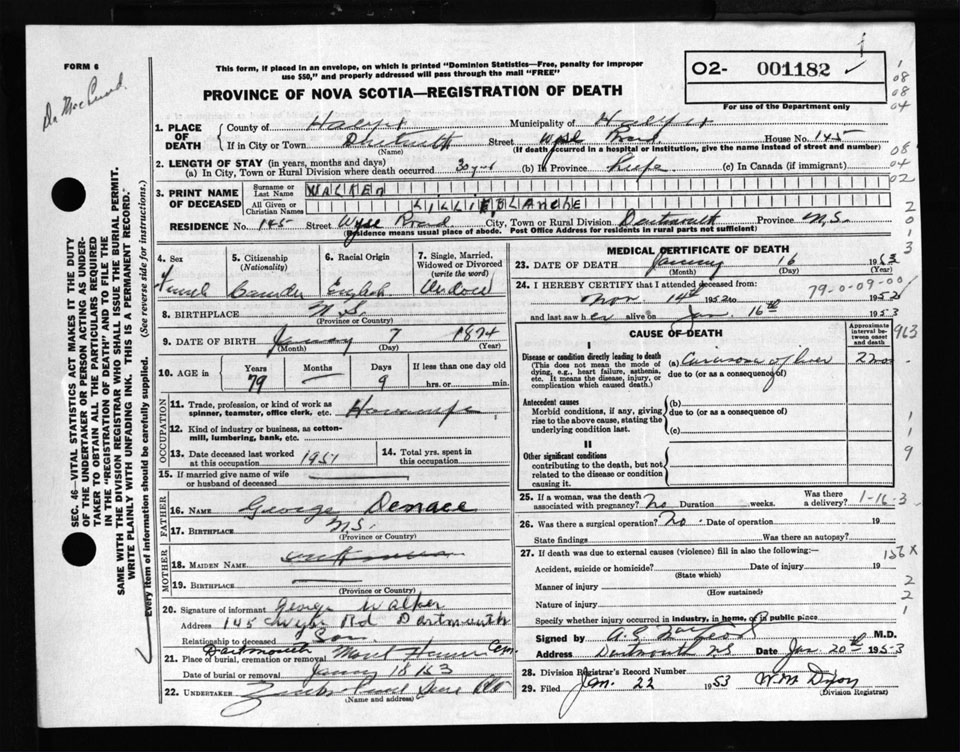 FORM 6
This form, if placed in an envelope, on which is printed "Dominion Statistics—Free, penalty for improper
use $50," and properly addressed will pass through the mail "FREE"
PROVINCE OF NOVA SCOTIA—REGISTRATION OF DEATH
O2- 001182 ✓
For use of the Department only
1. PLACE OF DEATH
County of Halifax Municipality of Halifax
If in City or Town Dartmouth Street Wyse Road House No. 145
(Name) (If death occurred in a hospital or institution, give the name instead of street and number)
2. LENGTH OF STAY (in years, months and days)
(a) In City, Town or Rural Division where death occurred 30 yrs (b) In Province Life (c) In Canada (if immigrant)
3. PRINT NAME OF DECEASED
Surname or Last Name WALKER
All Given or Christian Names LILLIE BLANCHE
RESIDENCE No. 145 Street Wyse Road City, Town or Rural Division Dartmouth Province N.S.
(Residence means usual place of abode. Post Office Address for residents in rural parts not sufficient)
4. Sex
Female
5. Citizenship (Nationality)
Canadian
6. Racial Origin
English
7. Single, Married, Widowed or Divorced (write the word)
Widow
8. BIRTHPLACE N.S.
(Province or Country)
9. DATE OF BIRTH January 7 1874
(Month) (Day) (Year)
10. AGE in
Years Months Days If less than one day old
79 — 9 hrs. or min.
OCCUPATION
11. Trade, profession, or kind of work as
spinner, teamster, office clerk, etc. Housewife
12. Kind of industry or business, as cotton-
mill, lumbering, bank, etc.
13. Date deceased last worked
at this occupation 1951
14. Total yrs. spent in
this occupation
15. If married give name of wife
or husband of deceased
FATHER
16. Name George
17. Birthplace N.S.
(Province or Country)
MOTHER
18. Maiden Name
19. Birthplace —
(Province or Country)
20. Signature of informant George Walker
Address 145 Wyse Rd Dartmouth
Relationship to deceased Son
21. Place of burial, cremation or removal Dartmouth Mount Cem.
Date of burial or removal January 18 1953
22. Undertaker
(Name and address)
MEDICAL CERTIFICATE OF DEATH
23. DATE OF DEATH January 16 1953
(Month) (Day) (Year)
24. I HEREBY CERTIFY that I attended deceased from:
79-0-09-00
Nov. 14th 1952 to 1952
and last saw her alive on Jan. 16th 1953
CAUSE OF DEATH
Approximate interval between onset and death
I
Disease or condition directly leading to death
(This does not mean the mode of dying, e.g., heart failure, asthenia, etc. It means the disease, injury, or complication which caused death.)
(a) Carcinoma of liver 2 mos.
due to (or as a consequence of)
Antecedent causes
Morbid conditions, if any, giving rise to the above cause, stating the underlying condition last.
(b)
due to (or as a consequence of)
(c)
II
Other significant conditions
contributing to the death, but not related to the disease or condition causing it.
25. If a woman, was the death
associated with pregnancy? No Duration weeks. Was there a delivery? 1-16-3
26. Was there a surgical operation? No Date of operation 19
State findings Was there an autopsy?
27. If death was due to external causes (violence) fill in also the following:—
Accident, suicide or homicide? Date of injury 19
(State which)
Manner of injury
(How sustained)
Nature of injury
Specify whether injury occurred in industry, in home, or in public place
Signed by M.D.
Address Dartmouth N.S. Date Jan. 20th 1953
28. Division Registrar's Record Number
29. Filed Jan. 22 1953 W.M. Dixon
(Division Registrar)
SEC. 46—VITAL STATISTICS ACT MAKES IT THE DUTY
OF THE UNDERTAKER OR PERSON ACTING AS UNDER-
TAKER TO OBTAIN ALL THE PARTICULARS REQUIRED
IN THE "REGISTRATION OF DEATH" AND TO FILE THE
SAME WITH THE DIVISION REGISTRAR WHO SHALL ISSUE THE BURIAL PERMIT.
WRITE PLAINLY WITH UNFADING INK. THIS IS A PERMANENT RECORD.
Every item of information should be carefully supplied. (See reverse side for instructions.)
1
08
08
04
08
04
02
963
1
1
9
156X
2
2
1